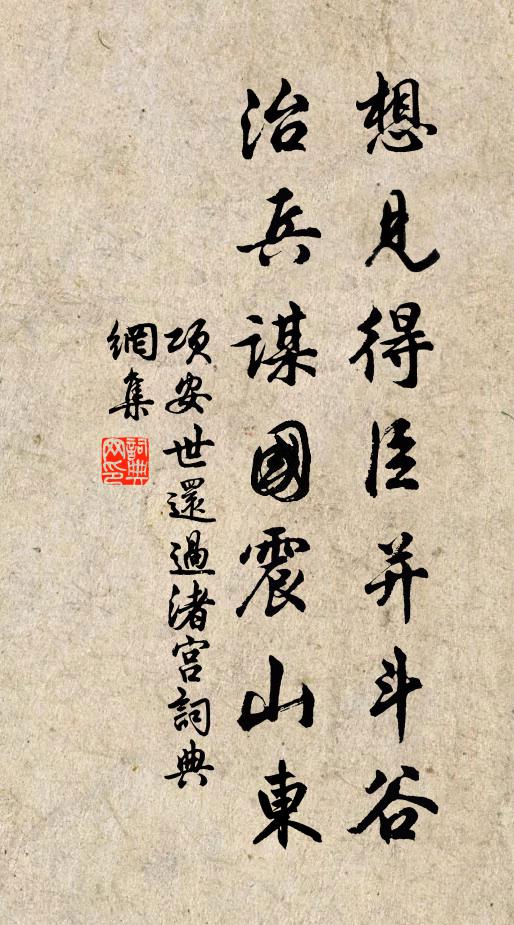 想見得臣并斗谷
治兵謀國震山東
項安世還過渚宮詞典
網集
詞典網印